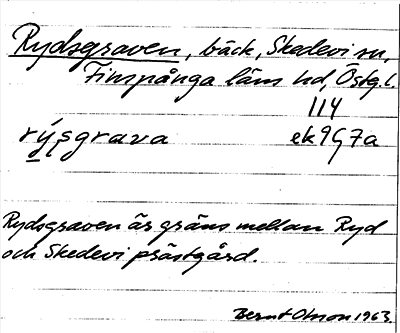 Rydsgraven, bäck, Skedevi sn,
Finspånga läns hd, Östg.l.
114
rýsgrava ek9G7a
Rydsgraven är gräns mellan Ryd
och Skedevi prästgård.
Bernt Olsson 1963.